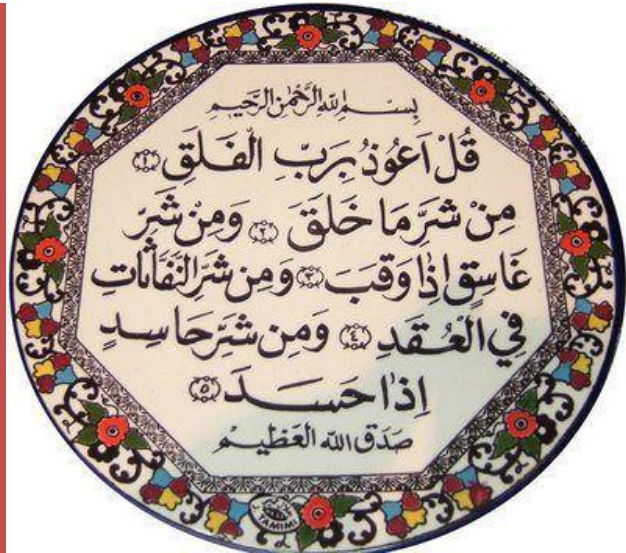 بِسْمِ اللهِ الرَّحْمٰنِ الرَّحِيمِ
قُلْ اَعُوذُ بِرَبِّ الْفَلَقِ ﴿١﴾
مِنْ شَرِّ مَا خَلَقَ ﴿٢﴾ وَمِنْ شَرِّ
غَاسِقٍ اِذَا وَقَبَ ﴿٣﴾ وَمِن شَرِّ النَّفَّاثَاتِ
فِي الْعُقَدِ ﴿٤﴾ وَمِن شَرِّ حَاسِدٍ
اِذَا حَسَدَ ﴿٥﴾
صَدَقَ اللهُ الْعَظِيمُ
TAMIMI